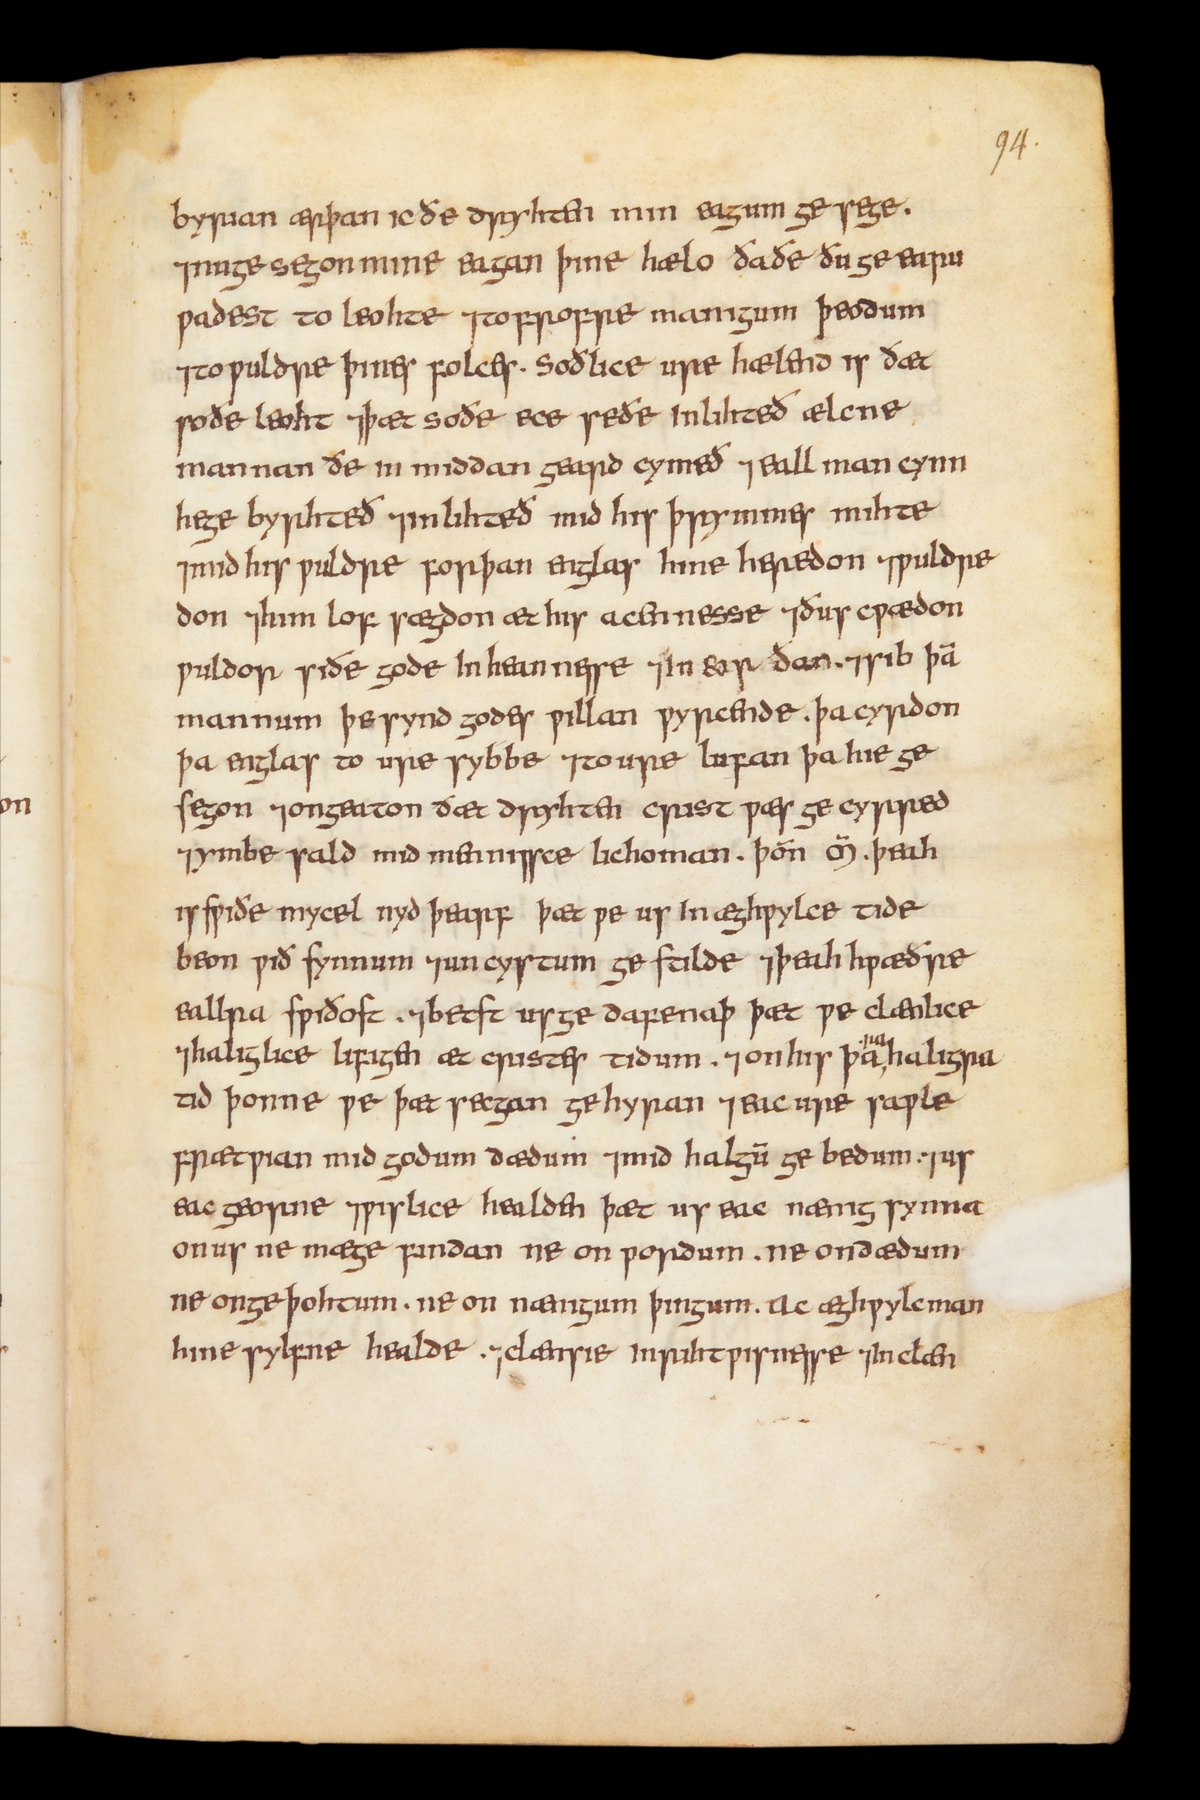 94.
byrian ærþan ic ðe dryhten min eagum ge sege.
⁊ nu ge segon mine eagan þine hælo ða ðe ðu ge earu
ƿadest to leohte ⁊ to frofre manigum þeodum
⁊ to ƿuldre þines folces. Soðlice ure hælend is ðæt
soðe leoht ⁊ þæt soðe ece seðe inlihteð ælcne
mannan ðe in middan geard cymeð ⁊ eall man cynn
he ge byrhteð ⁊ inlihteð mid his þrymmes mihte
⁊ mid his ƿuldre forþan englas hine heredon ⁊ ƿuldre
don ⁊ him lof sægdon æt his acennesse ⁊ ðus cƿædon
ƿuldor siðe gode in heannesse ⁊ in eor ðan. ⁊ sib þā
mannum þe synd godes ƿillan ƿyrcende. þa cyrdon
þa englas to ure sybbe ⁊ to ure lufan þa hie ge
segon ⁊ ongeaton ðæt dryhten crist ƿæs ge cyrred
⁊ ymbe sald mid mennissce lichoman. þoñ m̃. þeah
is sƿiðe mycel nyd þearf þæt ƿe us in æghƿylce tide
beon ƿið synnum ⁊ un cystum ge stilde ⁊ þeah hƿæðre
ealra sƿiðost. ⁊ betst us ge dafenaþ þæt ƿe clænlice
⁊ haliglice lifigen æt cristes tidum. ⁊ on his þā ra haligra
tid þonne ƿe þæt secgan ge hyran ⁊ eac ure saƿle
frætƿian mid godum dædum ⁊ mid halgū ge bedum. ⁊ us
eac georne ⁊ ƿislice healden þæt us eac nænig synna
on us ne mæge findan ne on ƿordum. ne on dædum
ne on ge þohtum. ne on nænigum þingum. Ac æghƿylc man
hine sylfne healde. ⁊ clænsie in rihtƿisnesse ⁊ in clæn
on